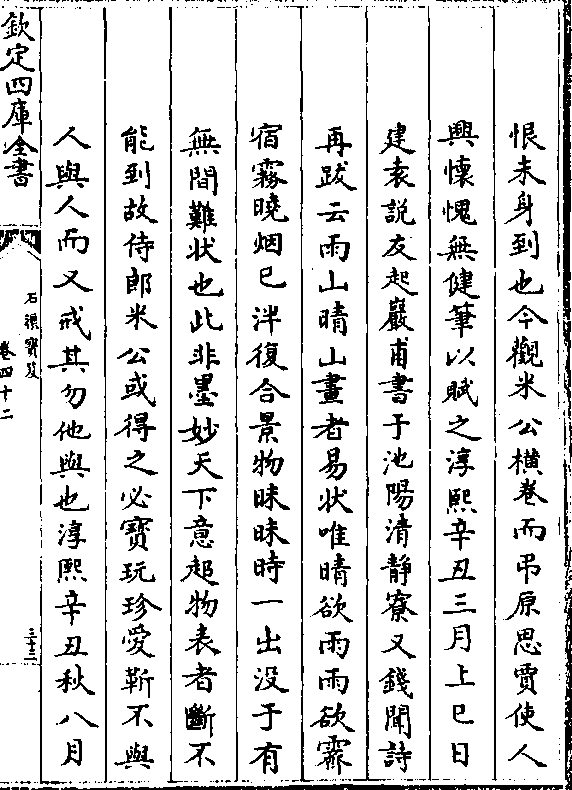 恨未身到也今觀米公横巻而弔原思賈使人
興懐愧無健筆以賦之淳熙辛丑三月上巳日
建袁説友起巖甫書于池陽清静寮又錢聞詩
再跋云雨山晴山畫者易状唯晴欲雨雨欲霽
宿霧曉烟已泮復合景物昧昧時一出没于有
無間難状也此非墨妙天下意超物表者斷不
能到故侍郎米公或得之必寳玩珍愛靳不與
人與人而又戒其勿他與也淳熙辛丑秋八月
欽定四庫全書
石渠寳笈
卷四十二
三十二